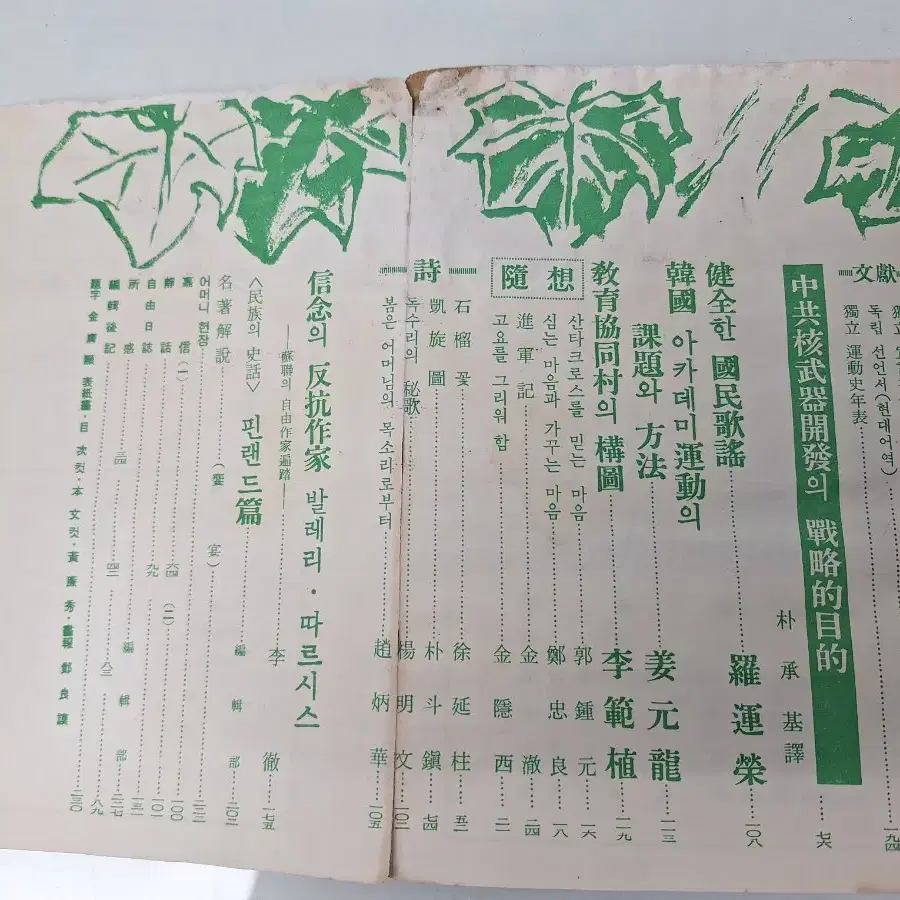 文獻
獨立
독립 선언서(현대어역)
獨立 運動史年表……一九四
中共核武器開發의 戰略的目的
朴承基譯……七六
健全한 國民歌謠……羅運榮……一〇八
韓國 아카데미運動의
課題와 方法……姜元龍……一一三
敎育協同村의 構圖……李範植……一一九
隨想
산타크로스를 믿는 마음……郭鍾元……一六
심는 마음과 가꾸는 마음……鄭忠良……一八
進軍記……金澈……二四
고요를 그리워 함……金隱西……二一
詩
石榴꽃……徐延柱……五二
凱旋圖……朴斗鎭……七四
독수리의 秘歌……楊明文……一〇三
봄은 어머님의 목소리로부터……趙炳華……一〇五
信念의 反抗作家 발레리·따르시스
—蘇聯의 自由作家遍踏—……李徹……一七五
〈民族의 史話〉 핀랜드篇……編輯部……二〇二
名著解說……(饗宴)
어머니 헌장……二三二
書信(一)……六四 (二)……一〇〇
靜話……九九……一〇一
自由日誌……編輯部……二二七
所感……二四
編輯後記……四二……八三……八九
題字·金 表紙畵·目次컷·本文컷·黃廉秀·畵報 鄭良謨……二三〇